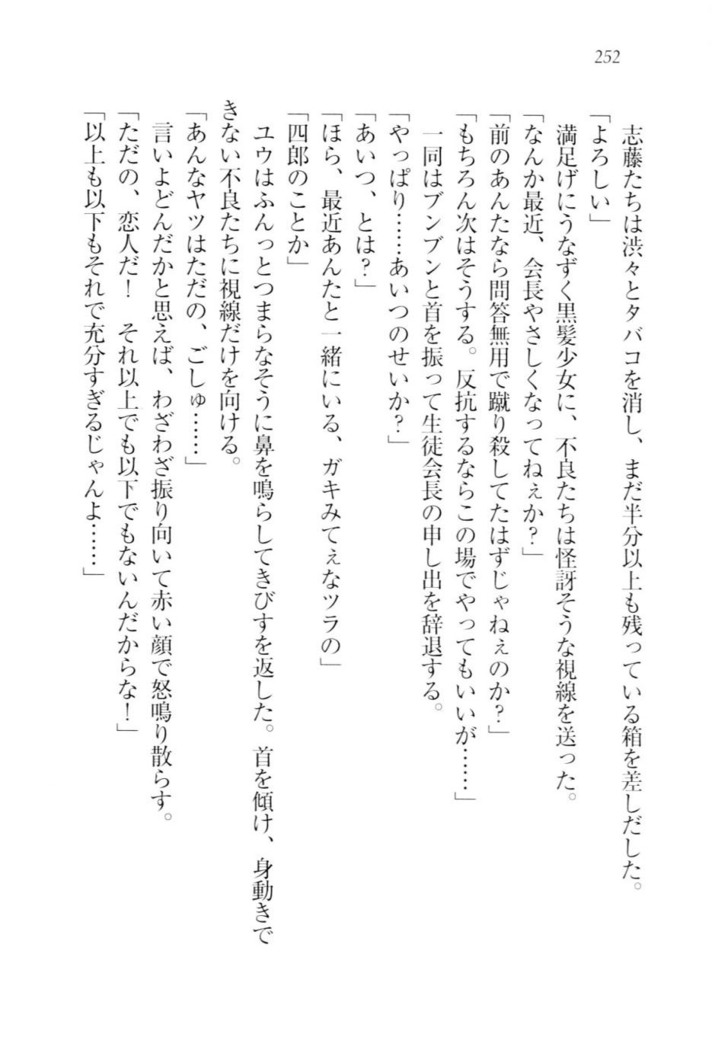 252
志藤たちは渋々とタバコを消し、まだ半分以上も残っている箱を差しだした。
「よろしい」
満足げにうなずく黒髪少女に、不良たちは怪訝そうな視線を送った。
「なんか最近、会長やさしくなってねぇか？」
「前のあんたなら問答無用で蹴り殺してたはずじゃねぇのか？」
「もちろん次はそうする。反抗するならこの場でやってもいいが……」
一同はブンブンと首を振って生徒会長の申し出を辞退する。
「やっぱり……あいつのせいか？」
「あいつ、とは？」
「ほら、最近あんたと一緒にいる、ガキみてぇなツラの」
「四郎のことか」
ユウはふんっとつまらなそうに鼻を鳴らしてきびすを返した。首を傾け、身動きで
きない不良たちに視線だけを向ける。
「あんなヤツはただの、ごしゅ……」
言いよどんだかと思えば、わざわざ振り向いて赤い顔で怒鳴り散らす。
「ただの、恋人だ！　それ以上でも以下でもないんだからな！」
「以上も以下もそれで充分すぎるじゃんよ……」